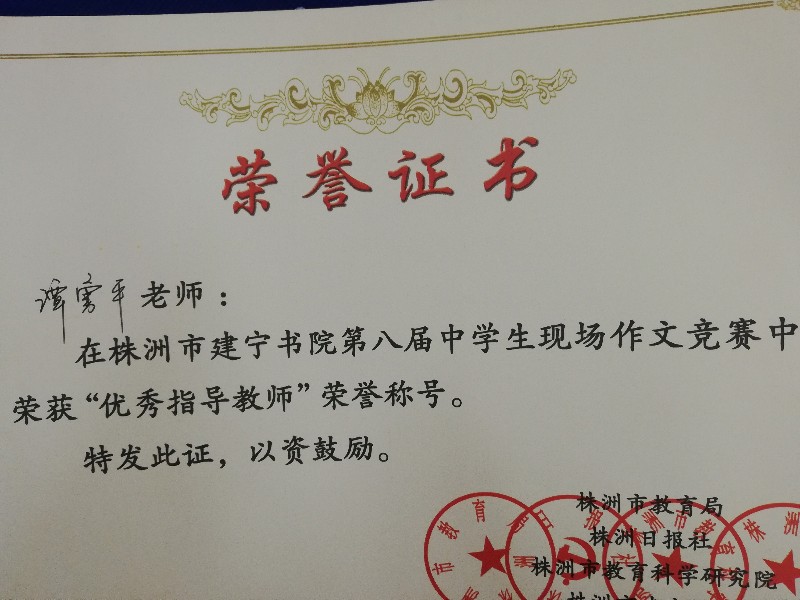 荣誉证书
谭雪平老师：
在株洲市建宁书院第八届中学生现场作文竞赛中
荣获“优秀指导教师”荣誉称号。
特发此证，以资鼓励。
株洲市教育局
株洲日报社
株洲市教育科学研究院